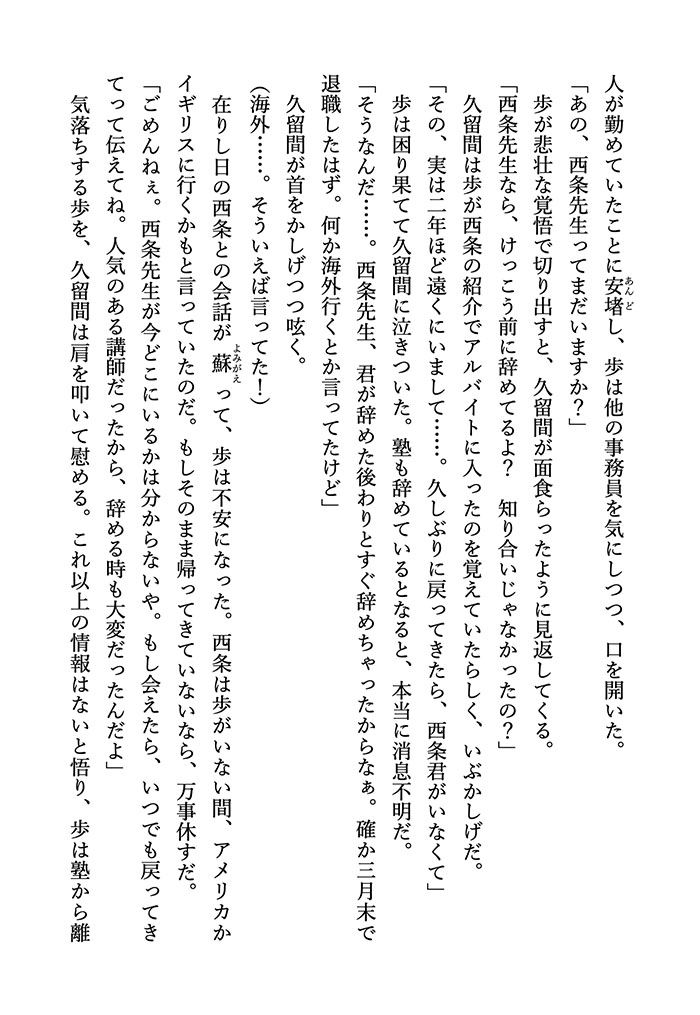 人が勤めていたことに安堵し、歩は他の事務員を気にしつつ、口を開いた。
「あの、西条先生ってまだいますか？」
歩が悲壮な覚悟で切り出すと、久留間が面食らったように見返してくる。
「西条先生なら、けっこう前に辞めてるよ？　知り合いじゃなかったの？」
久留間は歩が西条の紹介でアルバイトに入ったのを覚えていたらしく、いぶかしげだ。
「その、実は二年ほど遠くにいまして……。久しぶりに戻ってきたら、西条君がいなくて」
歩は困り果てて久留間に泣きついた。塾も辞めているとなると、本当に消息不明だ。
「そうなんだ……。西条先生、君が辞めた後わりとすぐ辞めちゃったからなぁ。確か三月末で
退職したはず。何か海外行くとか言ってたけど」
久留間が首をかしげつつ呟く。
（海外……。そういえば言ってた！）
在りし日の西条との会話が蘇って、歩は不安になった。西条は歩がいない間、アメリカか
イギリスに行くかもと言っていたのだ。もしそのまま帰ってきていないなら、万事休すだ。
「ごめんねぇ。西条先生が今どこにいるかは分からないや。もし会えたら、いつでも戻ってき
てって伝えてね。人気のある講師だったから、辞める時も大変だったんだよ」
気落ちする歩を、久留間は肩を叩いて慰める。これ以上の情報はないと悟り、歩は塾から離
あんど
よみがえ